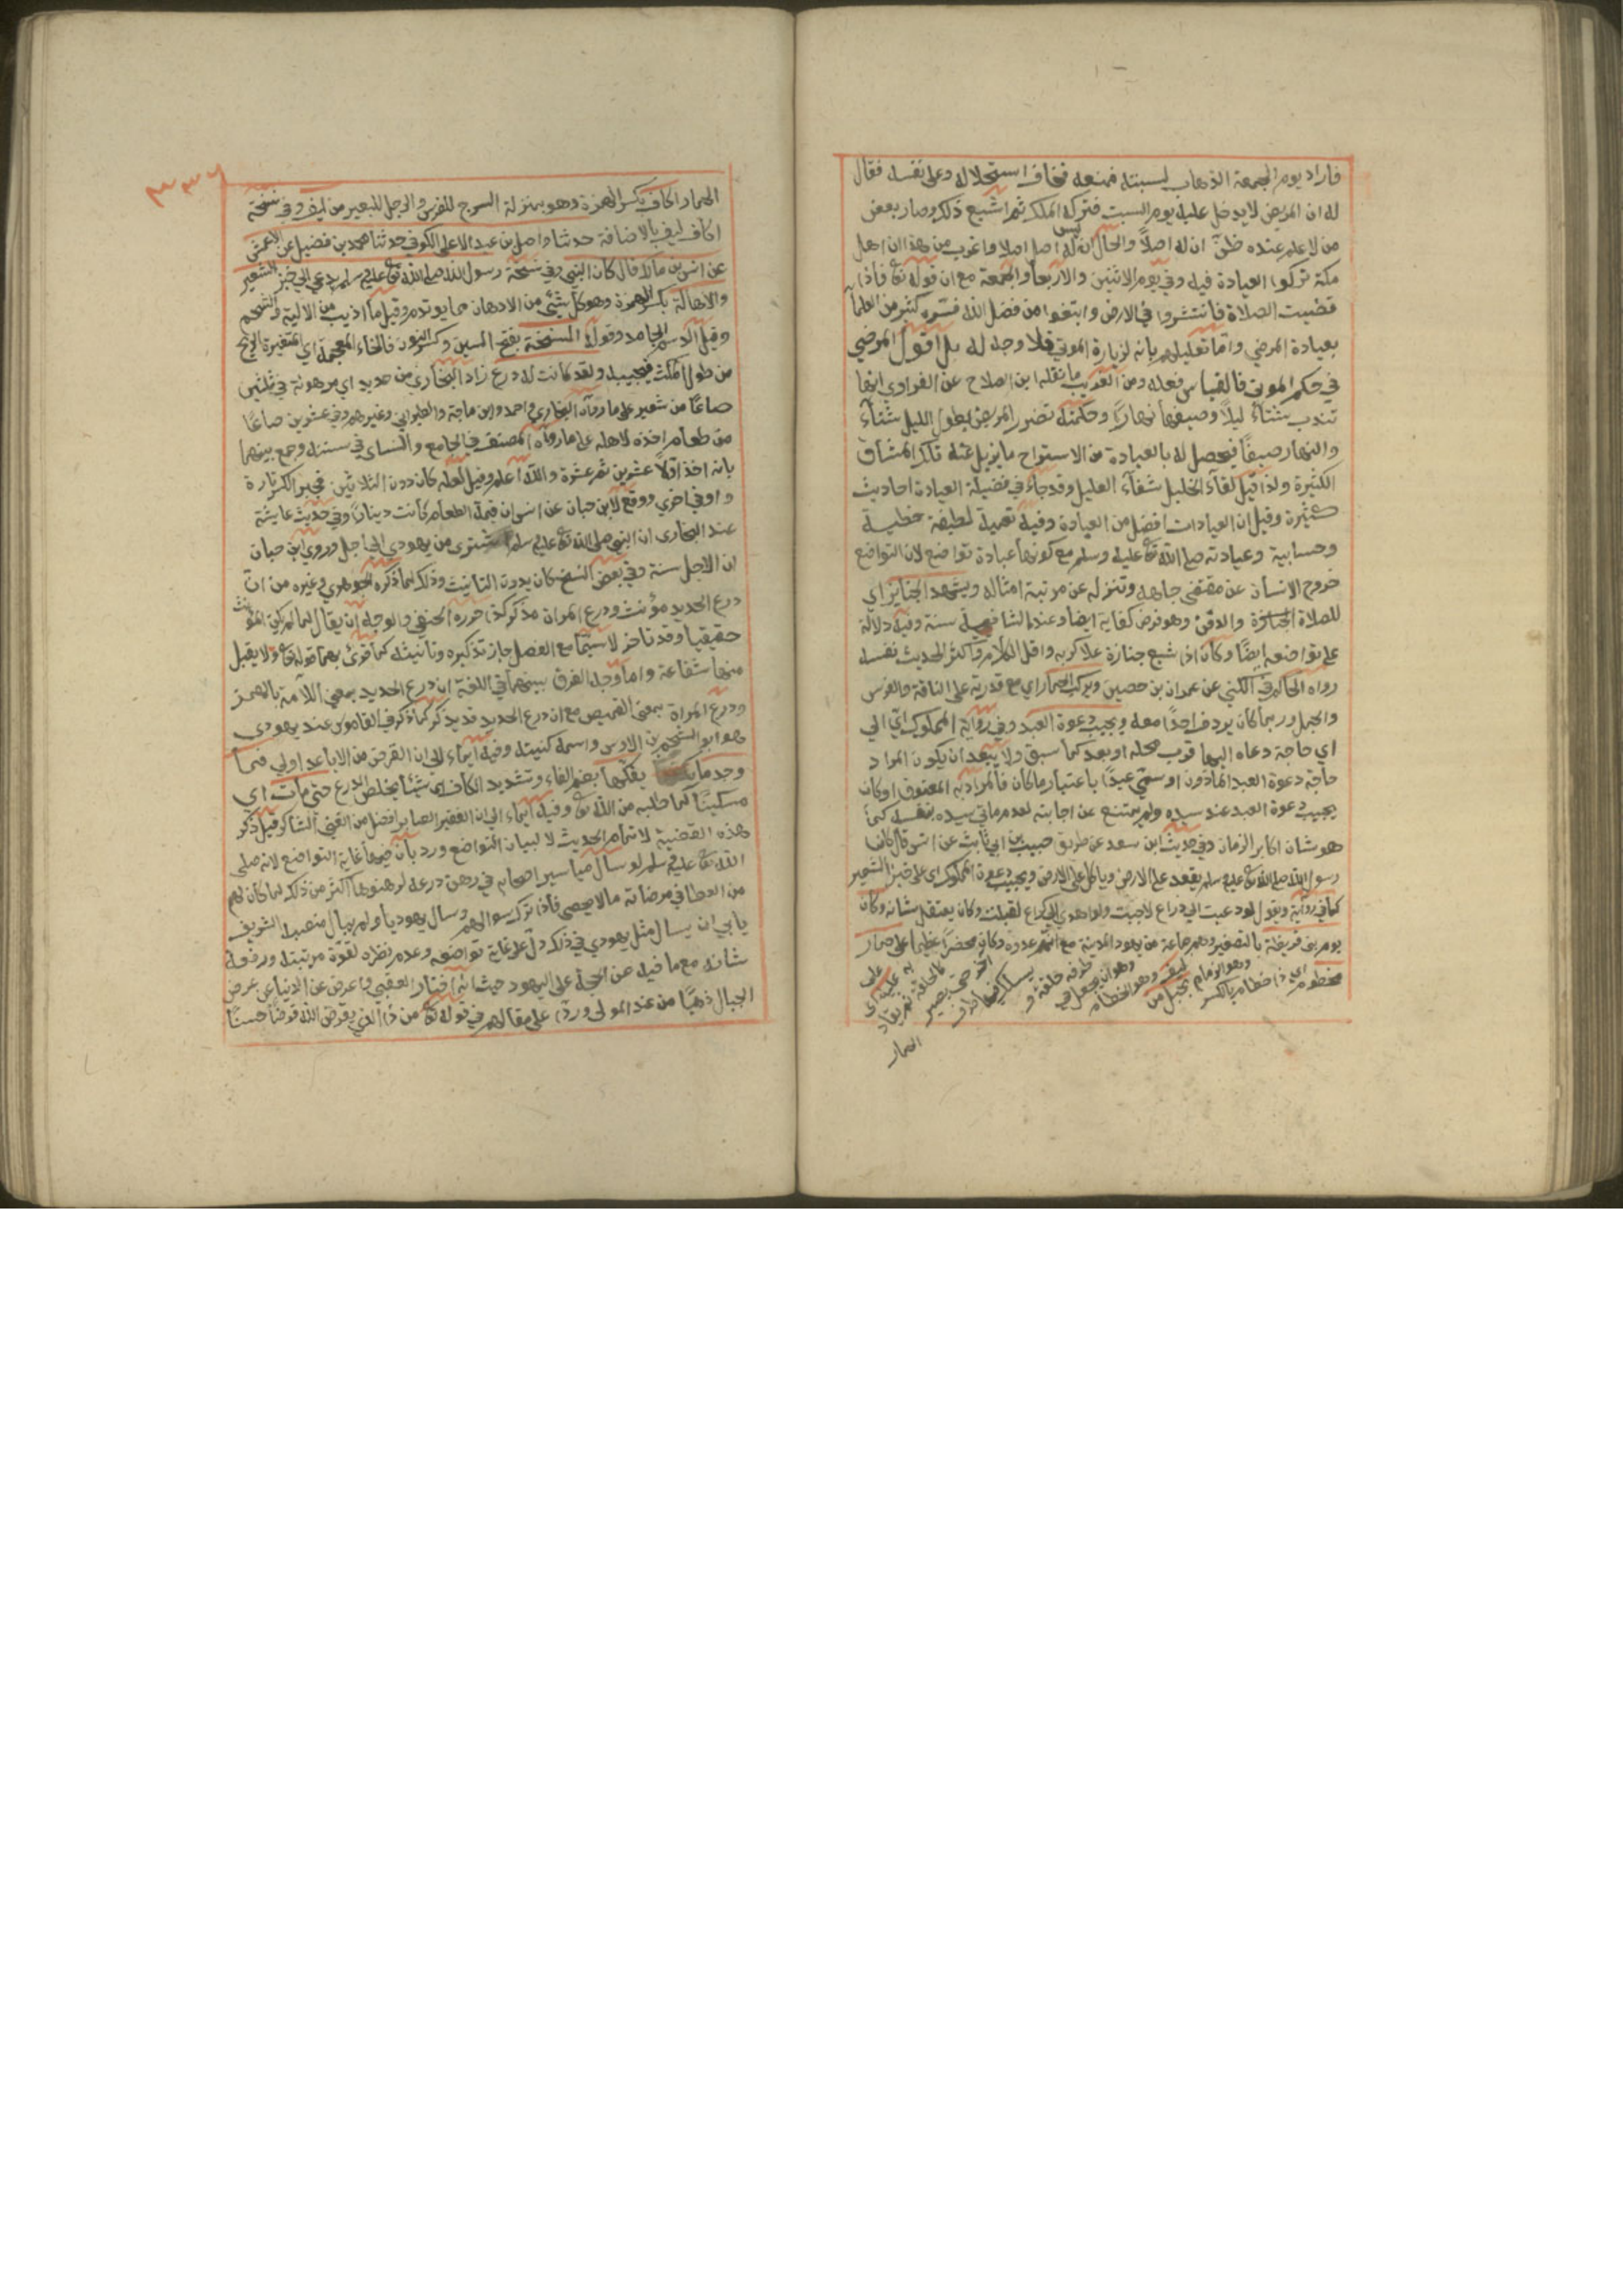 فاراد يوم الجمعة الذهاب لسبته فمنعه فخاف استحلاله دمه على نفسه فقال
له ان المريض لا يدخل عليه يوم السبت فتركه الملك ثم اشيع ذلك وصار بعض
من لا علم عنده ظن ان له اصلا والحال انه ليس له اصل اصلا واغرب من هذا ان اهل
مكة تركوا العيادة فيه وفي يوم الاثنين والاربعاء والجمعة مع ان قوله تع فاذا
قضيت الصلاة فانتشروا في الارض وابتغوا من فضل الله فسره كثير من العلما
بعيادة المرضي واما تعليلهم بانه لزيارة الموتي فلا وجه له بل اقول المرضي
في حكم الموتى فالقياس فعله ومن الغريب ما نقله ابن الصلاح عن الفراوي انها
تندب شتاء ليلا وصيفها نهارا وحكمته تضرر المريض بطول الليل شتاء
والنهار صيفا فيحصل له بالعيادة من الاسترواح ما يزيل عنه تلك المشاق
الكثيرة ولذا قيل لقاء الخليل شفاء العليل وقد جاء في فضيلة العيادة احاديث
كثيرة وقيل ان العيادات افضل من العبادة وفيه تعمية لطيفة خطية
وحسابية وعيادته صلى الله تع عليه وسلم مع كونها عبادة تواضع لان التواضع
خروج الانسان عن مقتضى جاهه وتنزله عن مرتبة امثاله ويشهد الجنايز اي
للصلاة الجنازة والدفن وهو فرض كفاية ايضا وعند الشافعية سنة وفيه دلالة
على تواضعه ايضا وكان اذا شيع جنازة علا كربه واقل الكلام واكثر الحديث نفسه
رواه الحاكم في الكني عن عمران بن حصين ويركب الحمار اي مع قدرته على الناقة والفرس
والجمل وربما كان يردف احدا معه ويجيب دعوة العبد وفي رواية المملوك اي الي
اي حاجة دعاه اليها قرب محله او بعد كما سبق ولا يبعد ان يكون المراد
حاجة دعوة العبد الماذون او سمي عبدا باعتبار ما كان فالمراد به المعتوق او كان
يجيب دعوة العبد عند سيده ولم يمتنع عن اجابته لعدم ماتي سيده بنفسه كما
هو شان اكابر الزمان وفي حديث ابن سعد عن طريق حبيب بن ابي ثابت عن انس قال كان
رسول الله صلى الله تع عليه وسلم يقعد على الارض وياكل على الارض ويجيب دعوة المملوك اي على خبز الشعير
كما في رواية ويقول لو دعيت الي ذراع لاجبت ولو اهدي الي كراع لقبلت وكان يعتقل شانه وكان
يوم بني قريظة بالتصغير وهم جماعة من يهود المدينة مع انهم عدوه وكان محضرا عظيما على حمار
مخطوم اي ذا خطام بالكسر وهو الزمام بحبل من ليف وهو الخطام وهو ان يجعل في طرفه حلقة و يسلك فيها طرف الاخر حتى يصير كالحلقة ثم يقاد به عليه اي على
الحمار
الحمار اكاف بكسر الهمزة وهو بمنزلة السرج للفرس والرحل للبعير من ليف وفي نسخة
اكاف ليف بالاضافة حدثنا واصل بن عبد الاعلى الكوفي حدثنا محمد بن فضيل عن الاعمش
عن انس بن مالك قال كان النبي وفي نسخة رسول الله صلى الله تع عليه وسلم يدعي الي خبز الشعير
والاهالة بكسر الهمزة وهو كل شئ من الادهان مما يوتدم وقيل ما اذيب من الالية والشحم
وقيل الدسم الجامد وقوله السنخة بفتح السين وكسر النون فالخاء المعجمة اي المتغيرة الريح
من طول المكث فيجيب ولقد كانت له درع زاد البخاري من حديد اي مرهونة في ثلثين
صاعا من شعير على ما رواه البخاري واحمد وابن ماجة والطبراني وغيرهم وفي عشرين صاعا
من طعام اخذه لاهله على ما رواه المصنف في الجامع والنساي في سننه وجمع بينهما
بانه اخذ اولا عشرين ثم عشرة والله اعلم وقيل لعله كان دون الثلاثين فجبر الكسر تارة
والغى اخري ووقع لابن حبان عن انس ان قيمة الطعام كانت دينارا وفي حديث عايشة
عند البخاري ان النبي صلى الله تع عليه وسلم اشترى من يهودي الي اجل وروي ابن حبان
ان الاجل سنة وفي بعض النسخ كان بدون التانيث وذلك لما ذكره الجوهري وغيره من ان
درع الحديد مؤنث ودرع المراة مذكر كذا حرره الحنفي والوجه ان يقال لما لم يكن المؤنث
حقيقيا وقد تاخر لا سيما مع الفصل جاز تذكيره وتانيثه كما قرئ بهما قوله تع ولا يقبل
منها شفاعة واما وجه الفرق بينهما في اللغة ان درع الحديد بمعني اللامة بالهمز
ودرع المراة بمعنى القميص مع ان درع الحديد قد يذكر كما ذكر في القاموس عند يهودي
هو ابو الشحم من الاوس واسمه كنيته وفيه ايماء الى ان القرض من الاباعد اولي فما
وجد ما يفكها بضم الفاء وتشديد الكاف اي شيئا يخلص الدرع حتى مات اي
مسكينا كما طلبه من الله تع وفيه ايماء الى ان الفقير الصابر افضل من الغني الشاكر قيل ذكر
هذه القضية لاتمام الحديث لا لبيان التواضع ورد بان فيها غاية التواضع لانه صلى
الله تع عليه وسلم لو سال مياسير اصحابه في رهن درعه لرهنوها اكثر من ذلك لما كان لهم
من العطا في مرضاته ما لا يحصى فاذا ترك سوالهم وسال يهوديا ولم يبال منصبه الشريف
يابي ان يسال مثل يهودي في ذلك دل على غاية تواضعه وعدم نظره لقوة مرتبته ورفعة
شانه مع ما فيه من الحجة على اليهود حيث انه اختار العقبى واعرض عن الدنيا عن عرض
الجبال ذهبا من عند المولى وردا على مقالهم في قوله تع من ذا الذي يقرض الله قرضا حسنا